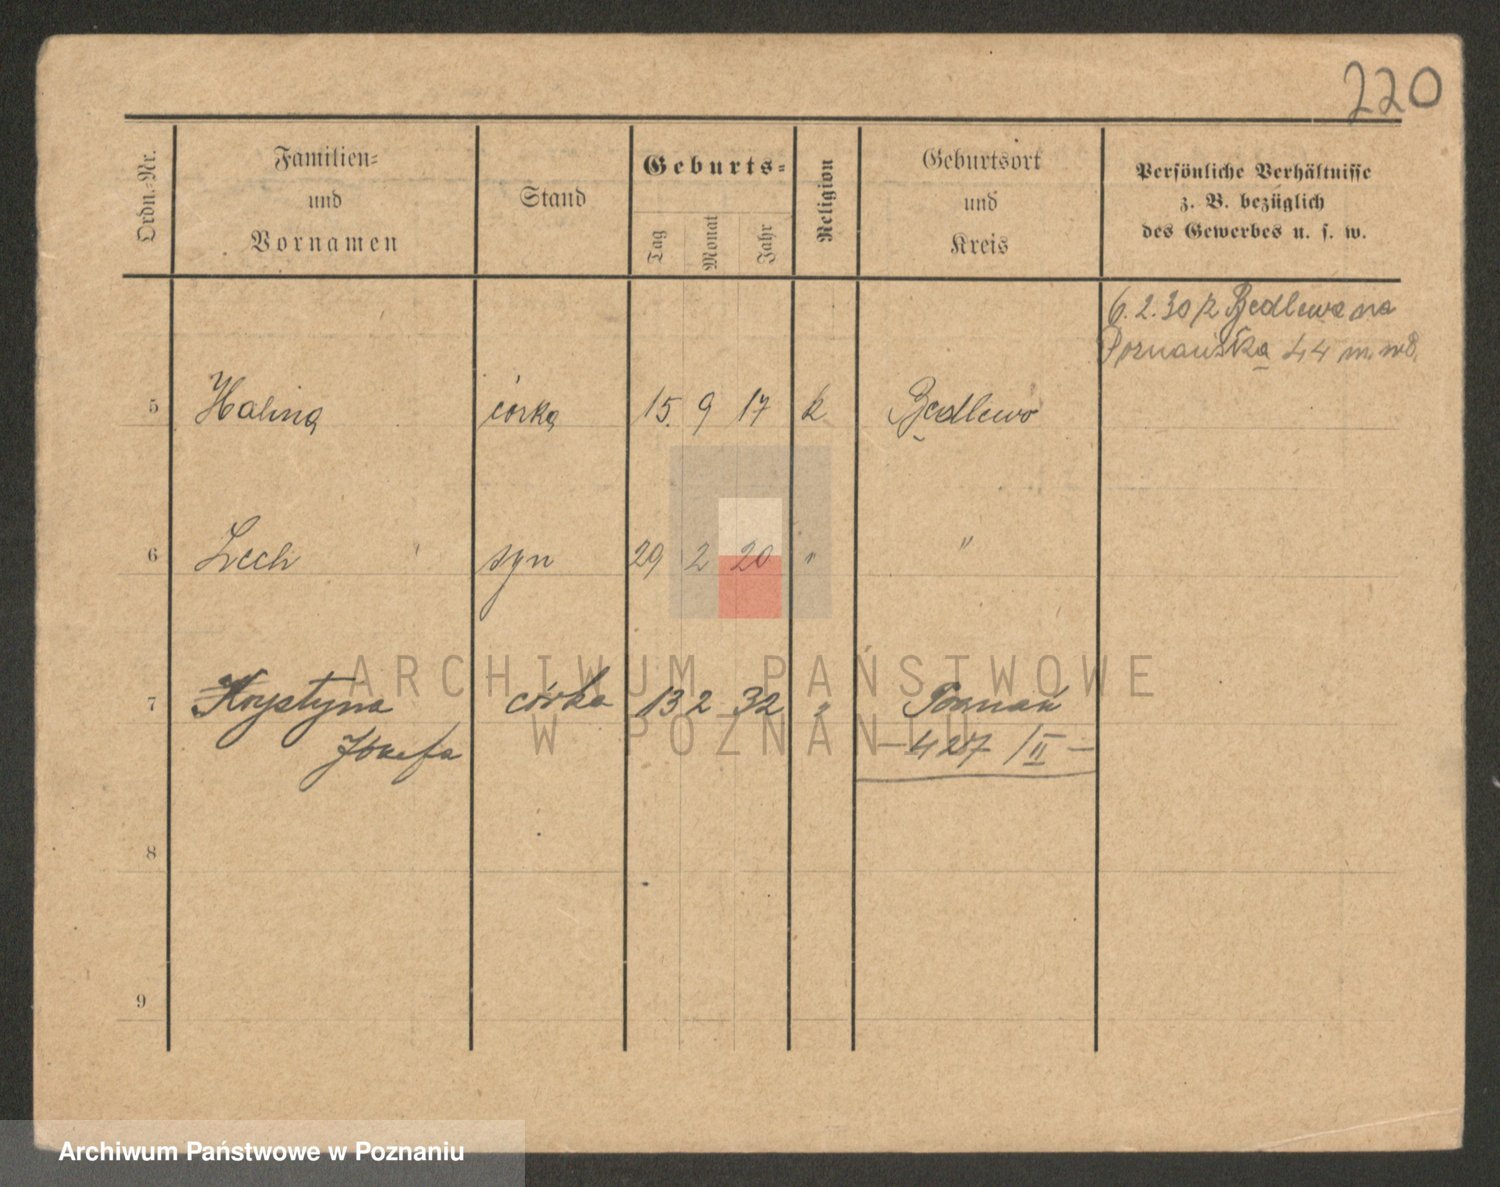 220
Ordn.-Nr.
Familien-
und
Vornamen
Stand
Geburts-
Tag
Monat
Jahr
Religion
Geburtsort
und
Kreis
Persönliche Verhältnisse
z. B. bezüglich
des Gewerbes u. s. w.
6.2.30 z Będlewa na
Poznańska 44 m.
5 Halina córka 15. 9 17 k Będlewo
6 Lech syn 29 2 20 " "
7 Krystyna córka 13 2 32 " Poznań
Józefa - 427 /II -
8
9
ARCHIWUM PAŃSTWOWE
W POZNANIU
Archiwum Państwowe w Poznaniu